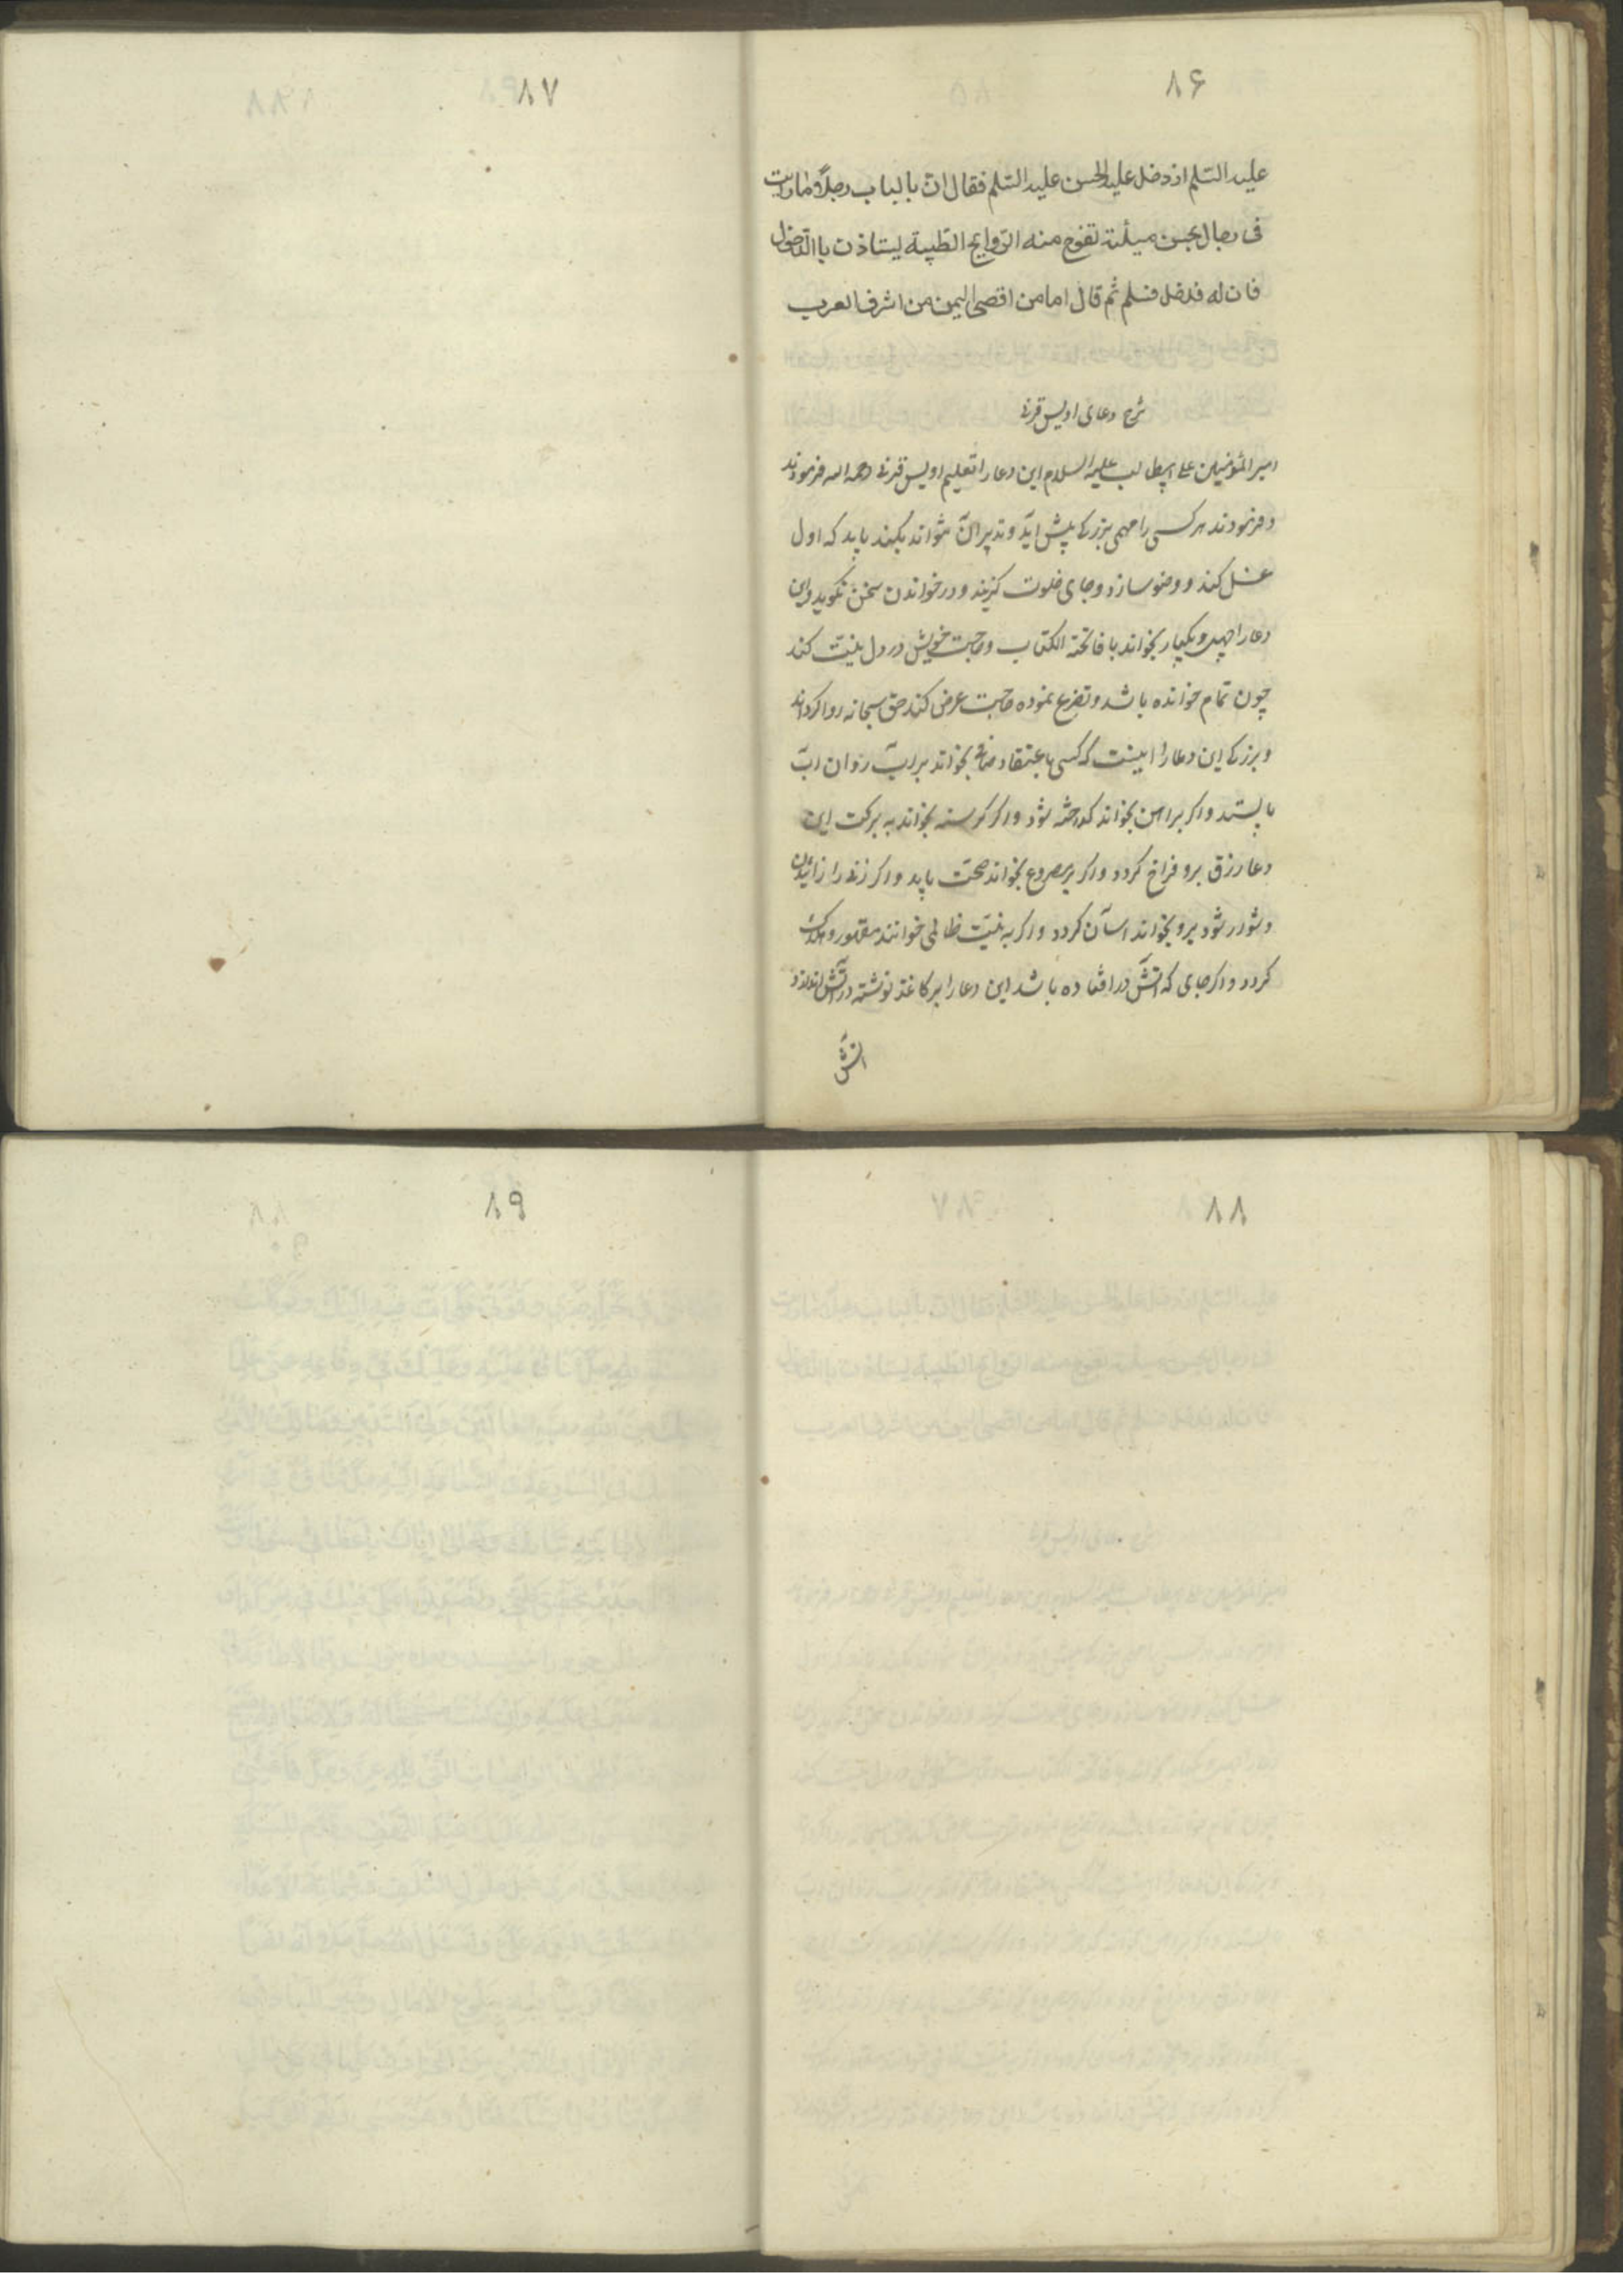 ۸۶
علیه السّلم اذ دخل علیه الحسن علیه السّلم فقال انّ بالباب رجلاً ما رایت
فی رجال یحسن میئته تفوح منه الرّوایح الطّیبة یستاذن باالدّخول
فاذن له فدخل فسلم ثم قال انا من اقصی الیمن من اشرف العرب
شرح دعای اویس قرنی
امیر المؤمنین علی ابیطالب علیه السلام این دعا را تعلیم اویس قرنی رحمه اله فرمودند
و فرمودند هر کسی را مهمی بزرک پیش اید و تدبیر آن نتواند بکند باید که اول
غسل کند و وضو سازد و جای خلوت کزیند و در خواندن سخن نکوید و این
دعا را چهل و یکبار بخواند با فاتحة الکتاب و حاجت خویش در دل نیت کند
چون تمام خوانده باشد و تضرع نموده حاجت عرض کند حق سبحانه روا کرداند
و بزرکی این دعا را اینست که کسی باعتقاد صاف بخواند بر اب روان اب
بایستد و اکر بر اهن بخواند کداخته شود و اکر کرسنه بخواند به برکت این
دعا رزق برو فراخ کردد و اکر بر مصروع بخواند صحت یابد و اکر زنی را زائیدن
دشوار شود برو بخواند اسان کردد و اکر به نیت ظالمی خوانند مقهور و هلاک
کردد و اکر جای که اتش در افتاده باشد این دعا را بر کاغذ نوشته در آتش اندازد
اتش
۸۷
۸۸
۸۹